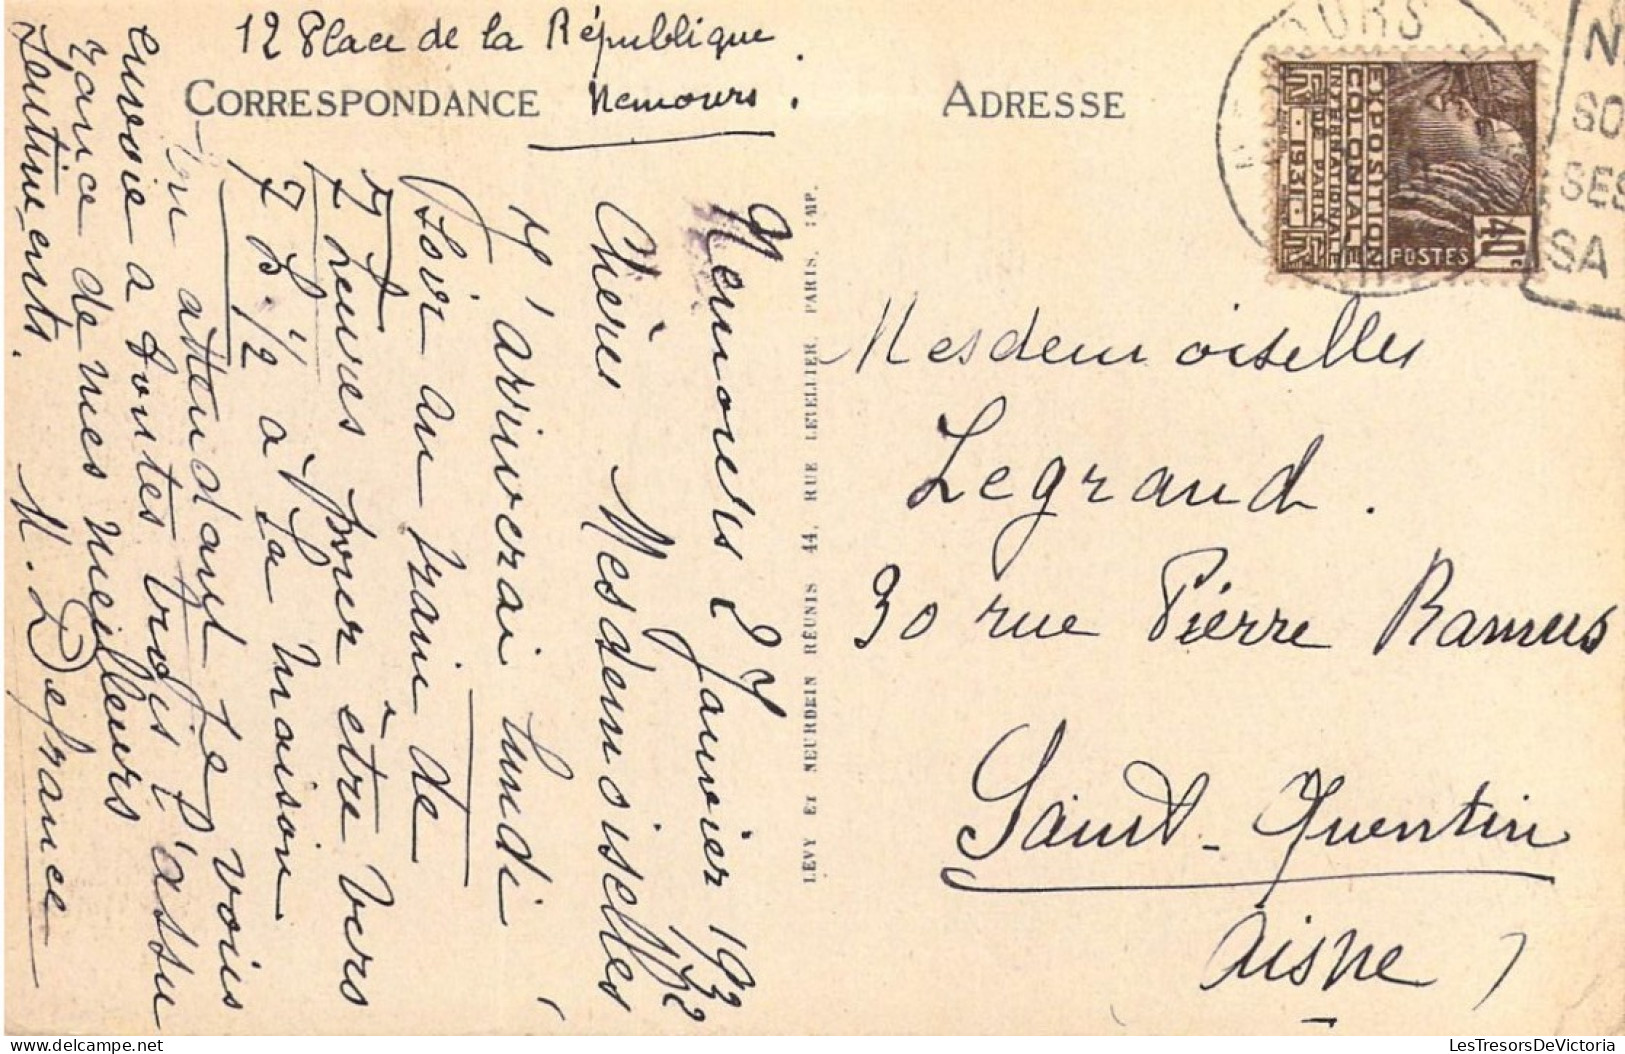 12 Place de la République.
Nemours.
CORRESPONDANCE
ADRESSE
Nemours 2 Janvier 1932
Chères Mesdemoiselles
J'arriverai lundi
soir au train de
7 heures pour être vers
7 h. 1/2 à la maison
En attendant je vous
envoie à toutes trois l'assu
rance de mes meilleurs
sentiments.
M. Defrance
LEVY ET NEURDEIN RÉUNIS 44, RUE LETELLIER, PARIS, IMP.
EXPOSITION
COLONIALE
INTERNATIONALE
DE PARIS
1931
POSTES
40c
SO
SES
SA
Mesdemoiselles
Legrand.
30 rue Pierre Ramus
Saint-Quentin
Aisne
LesTresorsDeVictoria